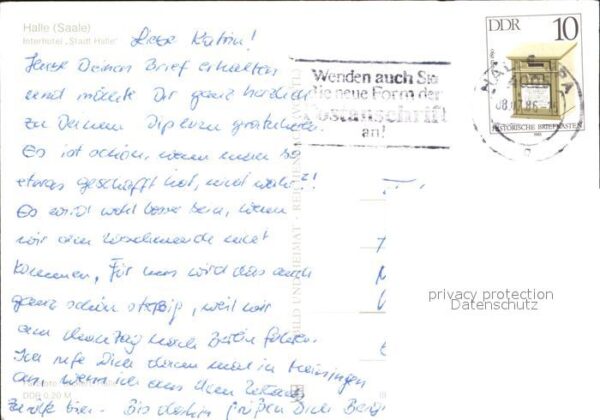 Halle (Saale)
Interhotel „Stadt Halle"
Liebe Katrin!
Habe Deinen Brief erhalten
und möchte Dir ganz herzlich
zu Deinem Diplom gratulieren.
Es ist schön, wenn man so
etwas geschafft hat, nicht wahr?!
Es wird wohl besser sein, wenn
wir am Wochenende nicht
kommen. Für uns wird das auch
ganz schön stressig, weil wir
am Montag nach Berlin fahren.
Ich rufe Dich dann mal in Meiningen
an, wenn ich aus dem Urlaub
zurück bin. Bis dahin grüßen Dich
DDR 0,20 M
BILD UND HEIMAT · REICHENBACH
Wenden auch Sie
die neue Form der
Postanschrift
an!
DDR 10
HISTORISCHE BRIEFKÄSTEN
privacy protection
Datenschutz